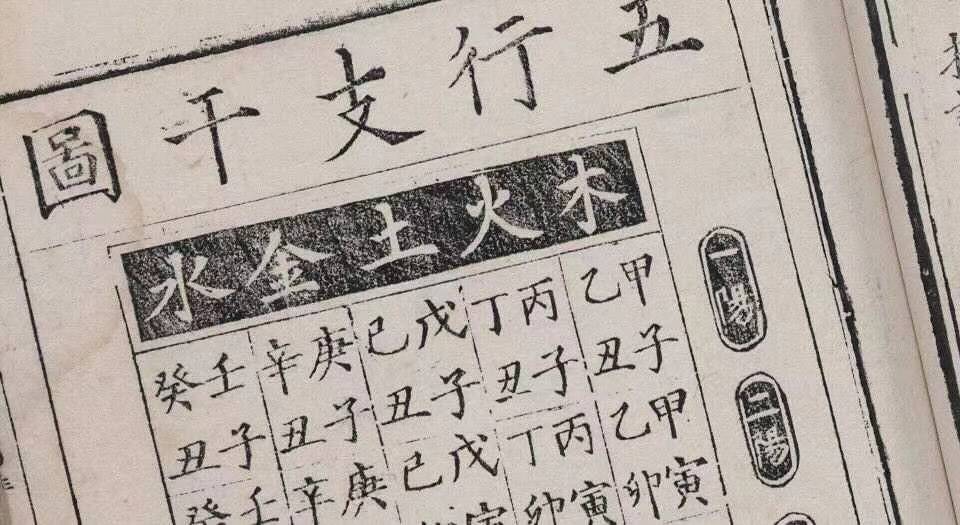 五行支干圖
木火土金水
一陽
甲乙丙丁戊己庚辛壬癸
子丑子丑子丑子丑子丑
二陽
甲乙丙丁戊己庚辛壬癸
寅卯寅卯寅卯